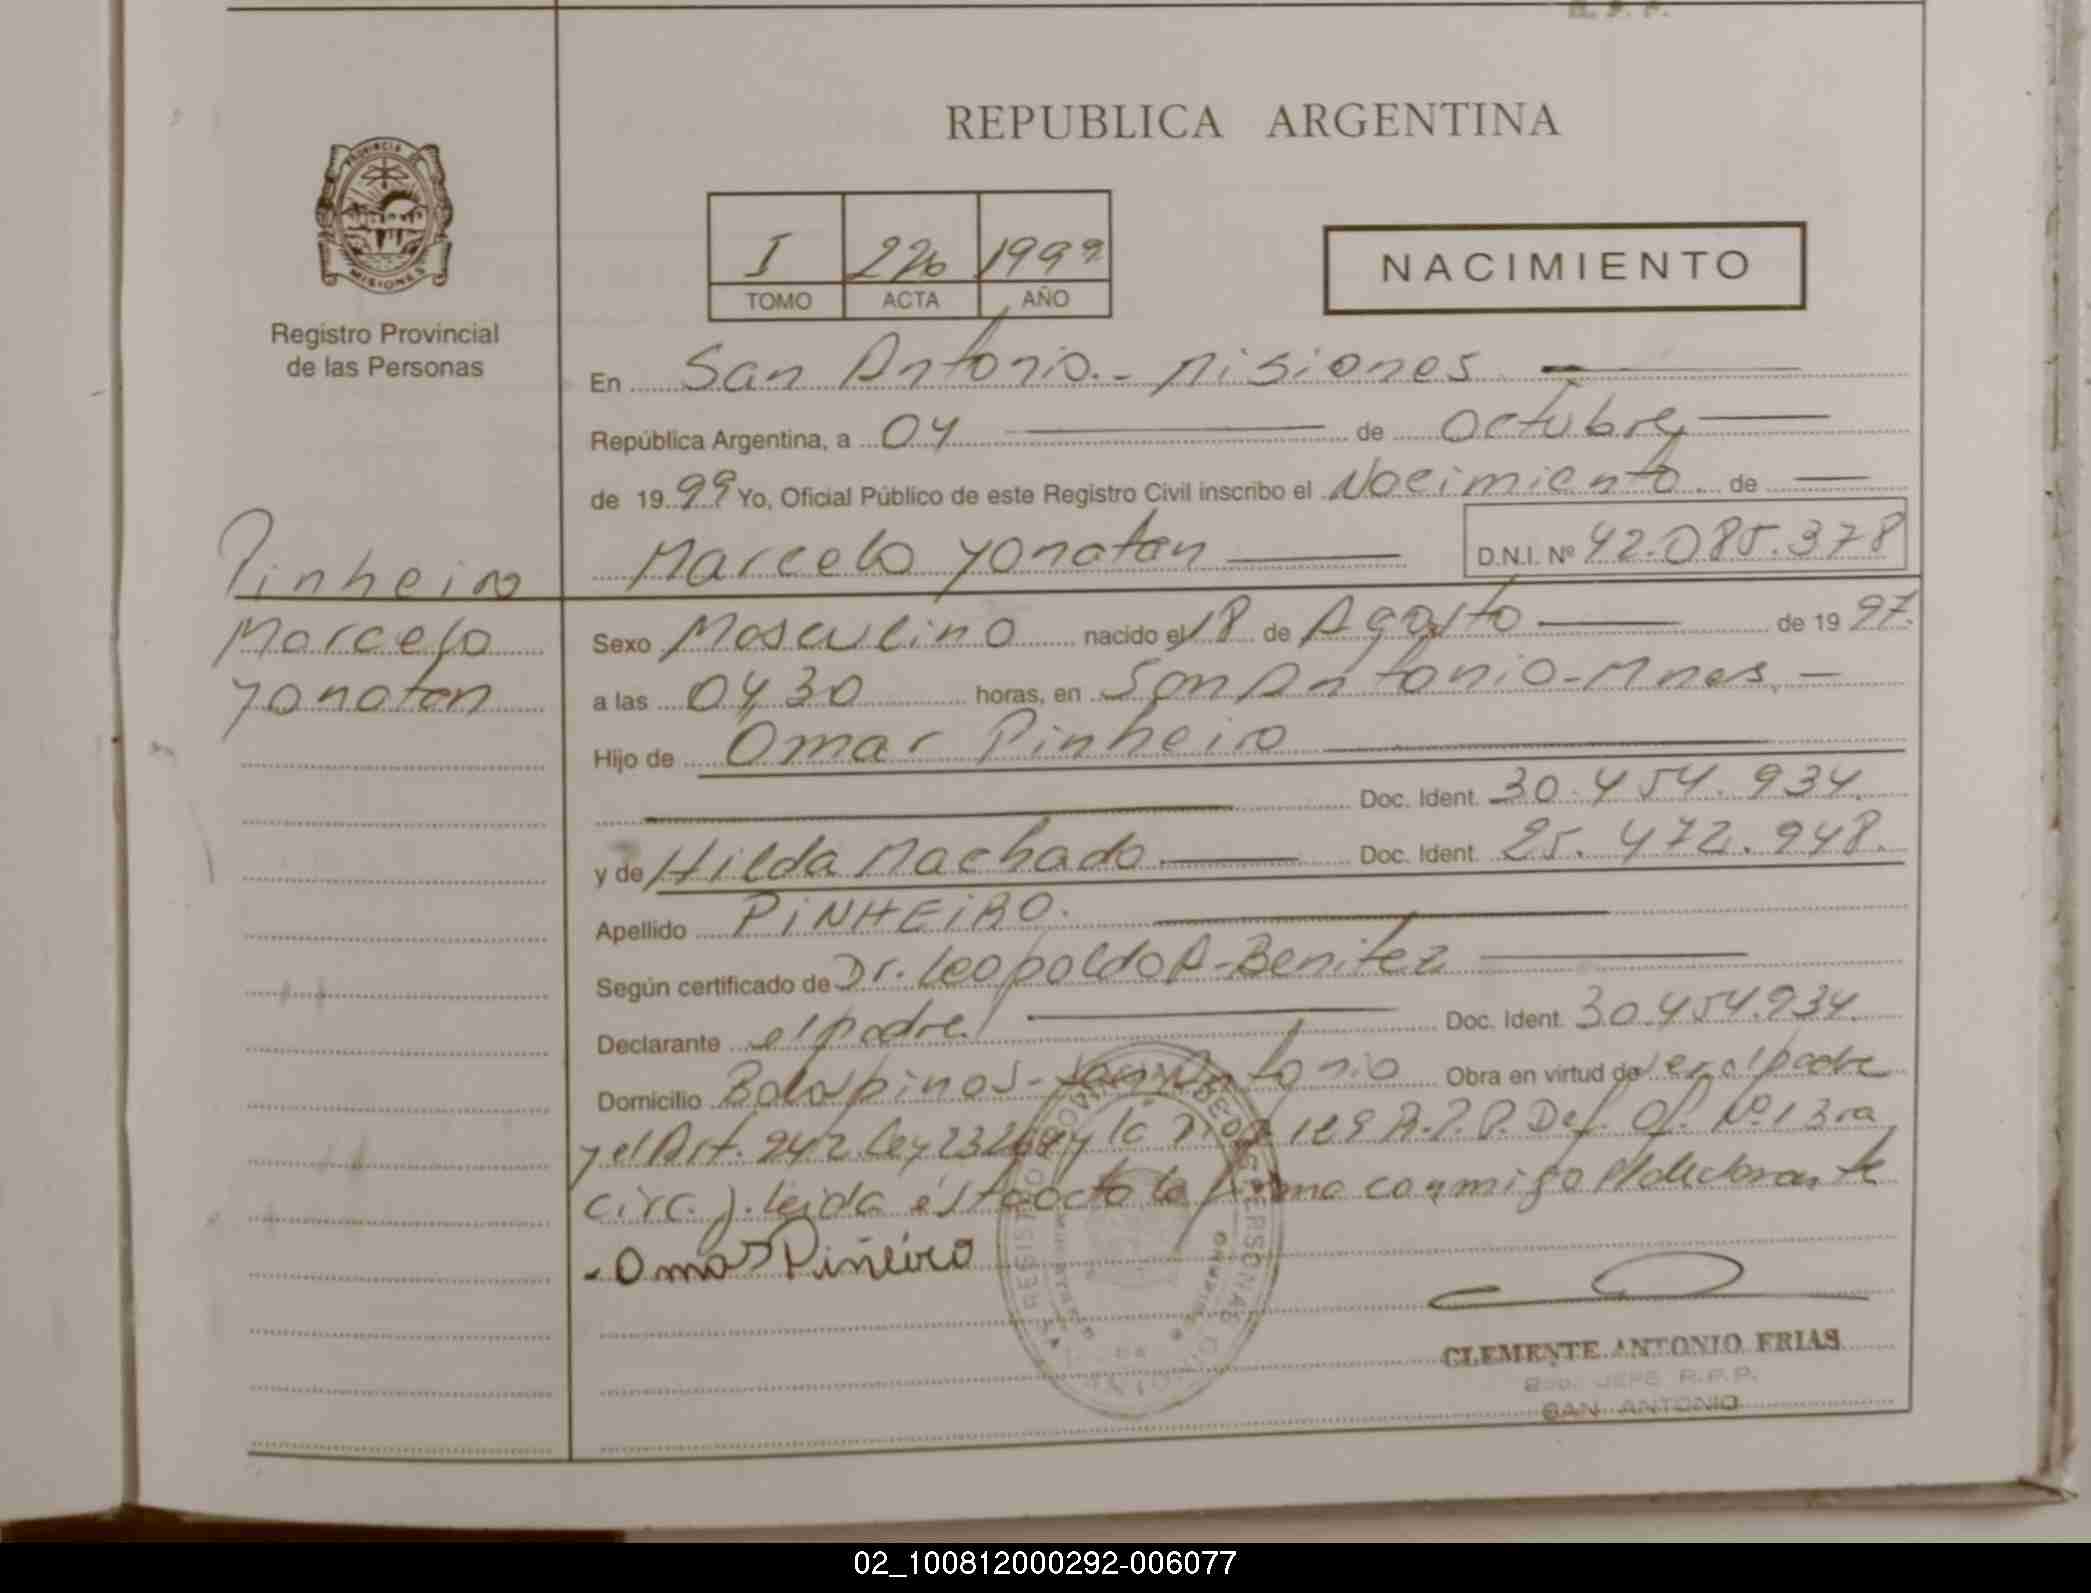 REPUBLICA ARGENTINA
PROVINCIA DE
MISIONES
Registro Provincial
de las Personas
I 226 1999
TOMO ACTA AÑO
NACIMIENTO
En San Antonio.- Misiones
República Argentina, a 04 de Octubre
de 1999 Yo, Oficial Público de este Registro Civil inscribo el Nacimiento de
Marcelo Yonatan D.N.I. Nº 42.085.378
Pinheiro
Marcelo
Yonatan
Sexo Masculino nacido el 18 de Agosto de 1997.
a las 04,30 horas, en San Antonio-Mnes.-
Hijo de Omar Pinheiro
Doc. Ident. 30.454.934.
y de Hilda Machado Doc. Ident. 25.472.948.
Apellido PINHEIRO.
Según certificado de Dr. Leopoldo A. Benitez
Declarante el padre Doc. Ident. 30.454.934.
Domicilio San Antonio Obra en virtud de ser el padre
y el Art. 242 Ley 23264 y la R.P.P. Def. Of. Nº 1 3ra
circ. j. leida ésta acta la firma conmigo el declarante
- Omar Piñeiro
CLEMENTE ANTONIO FRIAS
JEFE R.P.P.
SAN ANTONIO
02_100812000292-006077